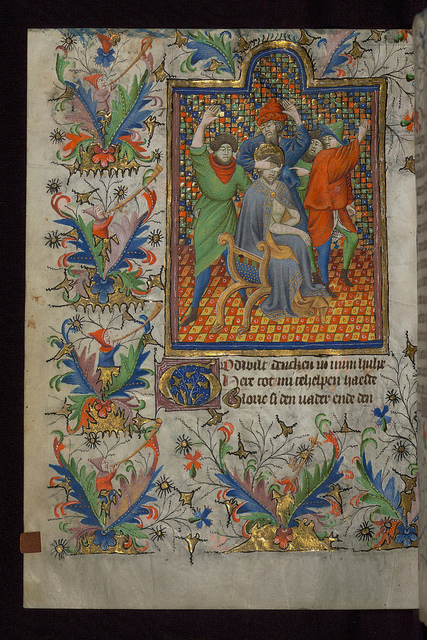 God wilt dencken in minn hulpe
Here tot mi tehelpen haeste
Glorie si den vader ende den